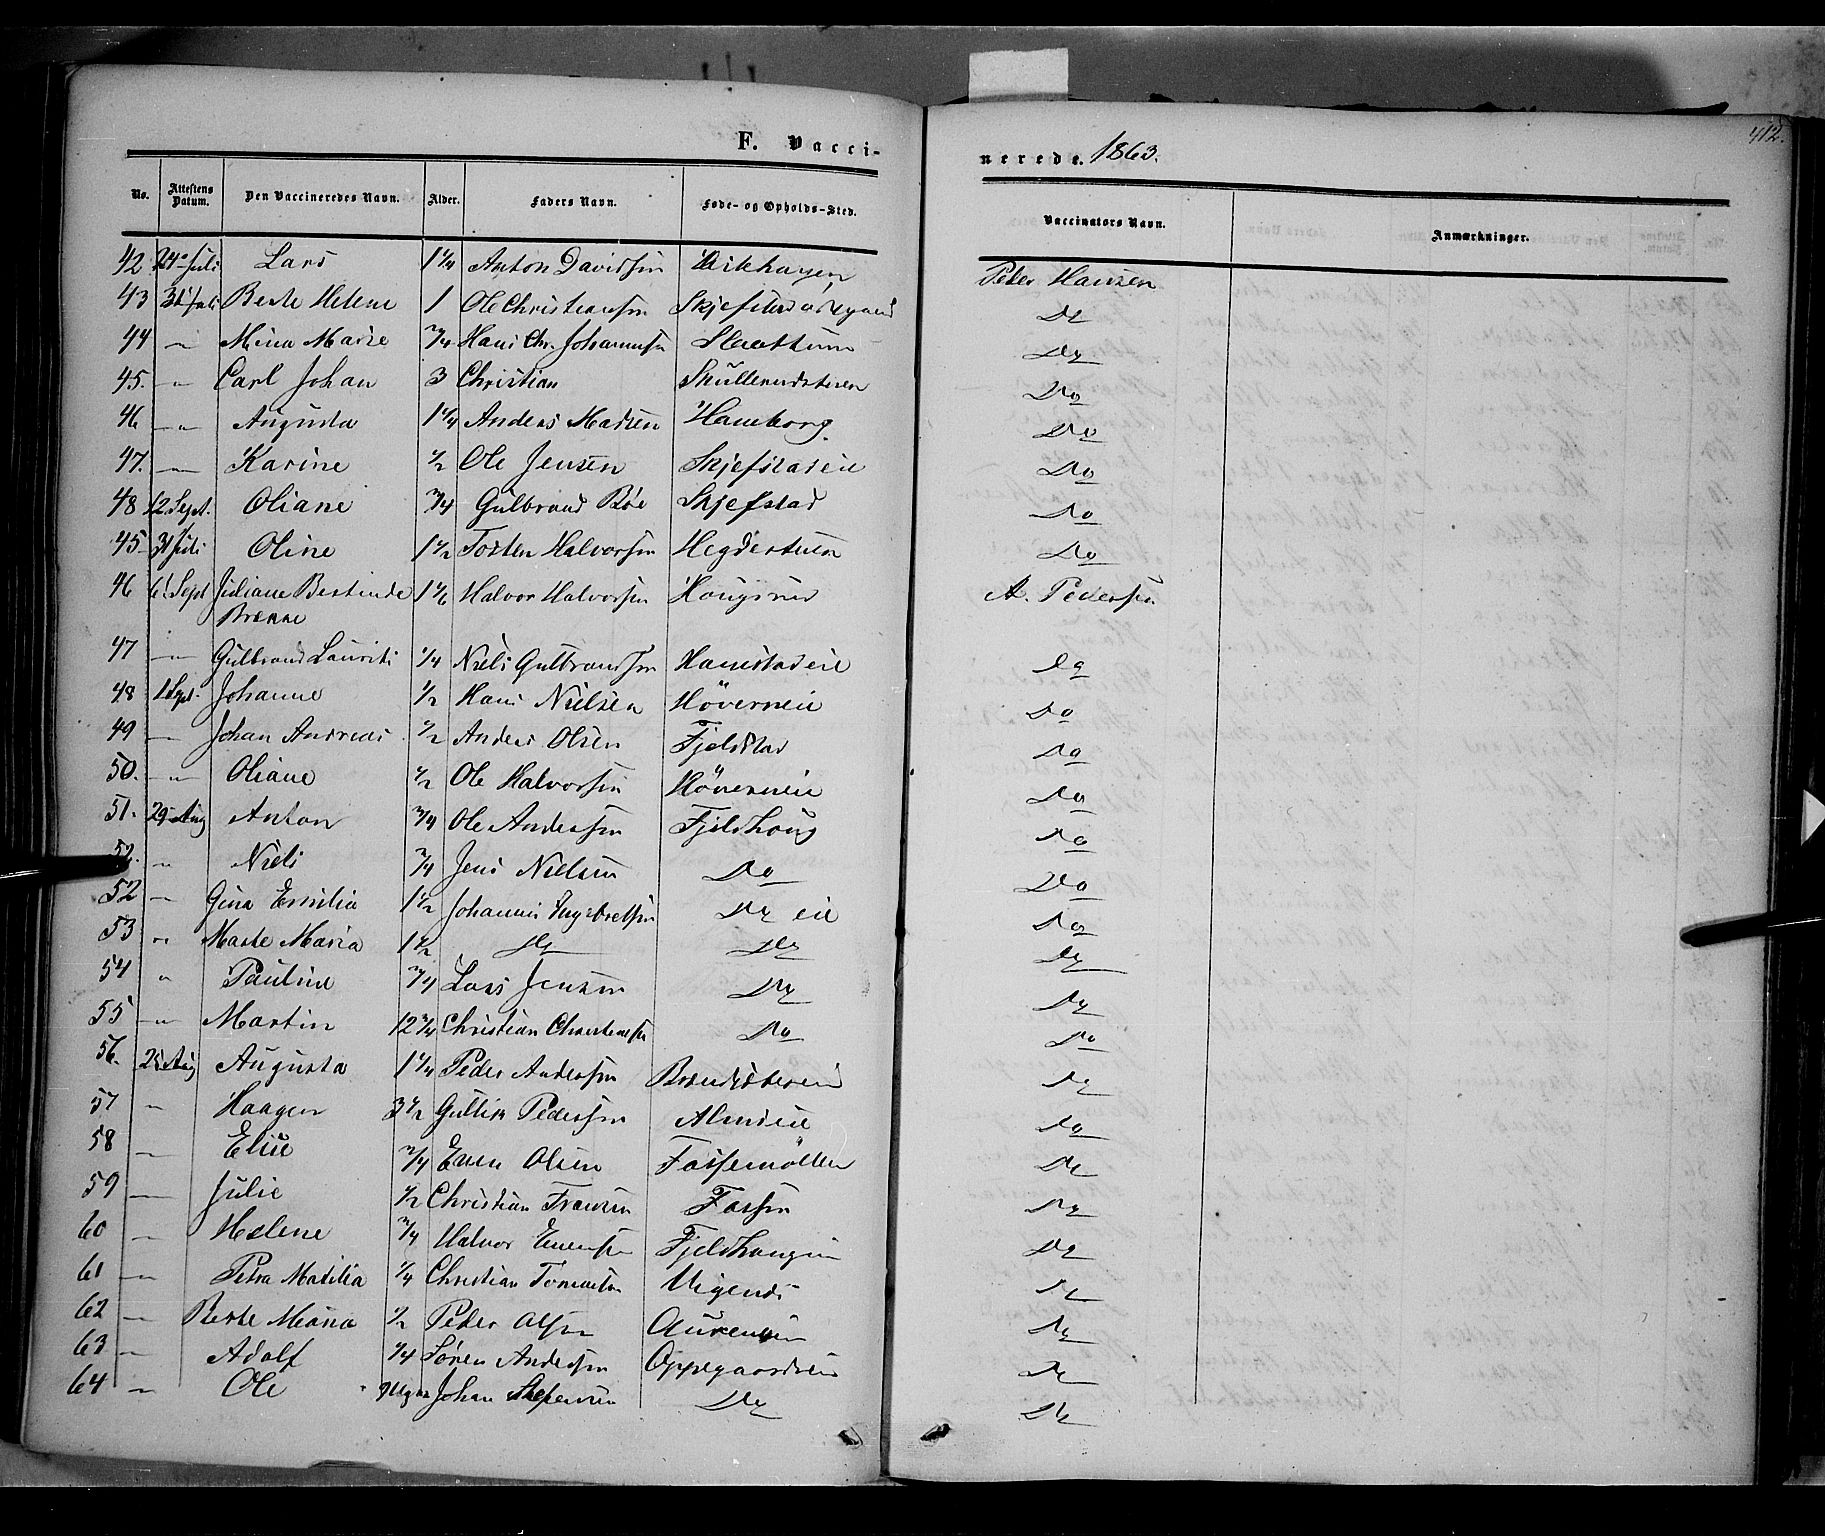 F. Vacci-
nerede. 1863.
412.
No. Attestens Datum. Den Vaccineredes Navn. Alder. Faders Navn. Føde- og Opholds-Sted. Vaccinators Navn. Anmærkninger.
42 24 Juli Lars 1 1/4 Anton Davidsen Peder Hansen
43 31 Juli Berte Helene 1 Ole Christiansen Do
44 " Mina Marie 3/4 Hans Chr. Johannesen Slaattum Do
45. " Carl Johan 3 Christian Skullerudsteren Do
46 " Augusta 1 1/4 Anders Madsen Hamborg Do
47. " Karine 1/2 Ole Jensen Skjefstadeie Do
48 12 Sept. Oliane 3/4 Gulbrand Bøe Skjefstad Do
45. 31 Juli Oline 1 1/2 Torsten Halvorsen Do
46 6 Sept Juliane Bertinde 1 1/6 Halvor Halvorsen Hougsrud A. Pedersen
Brænne
47 " Gulbrand Laurits 1/4 Niels Gulbrandsen Hamstadeie Do
48 1 Sept. Johanne 1/2 Hans Nielsen Höverneie Do
49 " Johan Andreas 1/2 Anders Olsen Fjeldstad Do
50. " Oliane 1/2 Ole Halvorsen Höverneie Do
51. 29 Aug Anton 3/4 Ole Andersen Fjeldhoug Do
52. " Niels 3/4 Jens Nielsen Do Do
52 " Gina Emilia 1 1/2 Johannes Engebretsen Do eie Do
53 " Marte Maria 1 1/2 Do Do Do
54 " Pauline 3/4 Lars Jensen Do Do
55 " Martin 12 3/4 Christian Christensen Do Do
56. 25 Aug Augusta 1 1/4 Peder Andersen Do
57 " Haagen 3 1/2 Gullik Pedersen Almeie Do
58 " Elise 3/4 Even Olsen Fossemöllen Do
59 " Julie 1/2 Christian Fransen Fossen Do
60 " Helene 3/4 Halvor Evensen Fjeldhaugen Do
61 " Petra Matilia 1/4 Christian Do
62 " Berte Maria 1/2 Peder Olsen Do
63 " Adolf 1/4 Søren Andersen Oppegaardseie Do
64 " Ole Johan Do Do